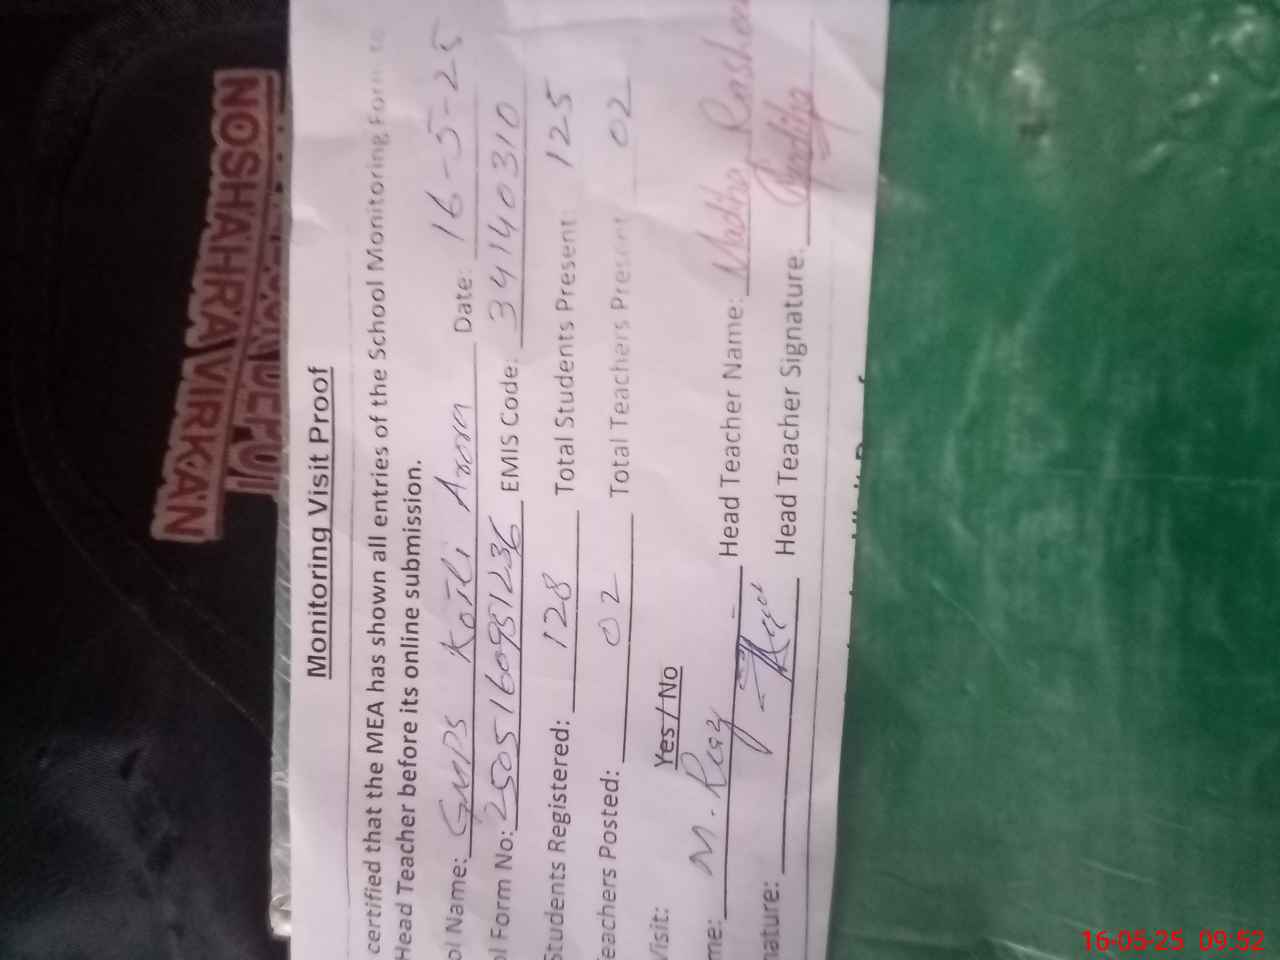 NOSHAHRA VIRKAN
Monitoring Visit Proof
certified that the MEA has shown all entries of the School Monitoring Form to
Head Teacher before its online submission.
ol Name: GMPS Kotli Arora Date: 16-5-25
ol Form No: EMIS Code: 34140310
Students Registered: 128 Total Students Present: 125
eachers Posted: 02 Total Teachers Present 02
Visit: Yes / No
me: M. Riaz Head Teacher Name: Madiha Rashee
nature: Head Teacher Signature: Madiha
16-05-25 09:52